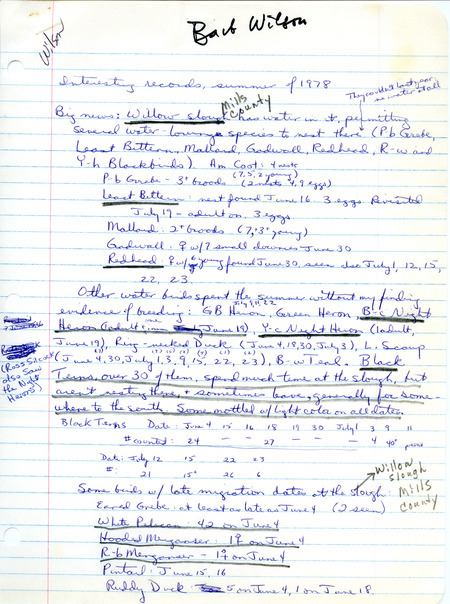 Barb Wilson
Wilson
Interesting records, summer of 1978
They couldn't last year, no water at all
Big news: Willow slough Mills County has water in it, permitting
several water-loving species to nest there (Pb Grebe,
Least Bittern, Mallard, Gadwall, Redhead, R-w and
Y-h Blackbirds). Am Coot: 4 nests
P-b Grebe - 3+ broods (7, 5, 2 young) (2 nests 4, 9 eggs)
Least Bittern: nest found June 16 3 eggs. Revisited
July 19 - adult on. 3 eggs
Mallard: 2+ broods (7, 3+ young)
Gadwall: ♀ w/7 small downies June 30
Redhead: ♀ w/ 6 young found June 30, seen also July 1, 12, 15,
22, 23.
Other water birds spent the summer without my finding
evidence of breeding: GB Heron, July 9, 11, 22 Green Heron B-c Night
Heron (adult, June 19), Y-c Night Heron (1 adult,
June 19), Ring-necked Duck (June 4, 18, 30, July 3), L. Scaup
(June 4, 30, July 1, 3, 9, 15, 22, 23), B-w Teal. Black
(Ross Silcock also saw the Night Herons)
Terns, over 30 of them, spend much time at the slough, but
aren't nesting here, + sometimes leave, generally for some-
where to the south. Some mottled w/ light color on all dates.
Black Terns Date: June 4 15 16 18 19 30 July 1 3 9 11
# counted: 24 - - 27 - - - - 4 40+
Date: July 12 15 22 23
#: 21 15+ 26 6
Some birds w/ late migration dates at the slough: Willow slough Mills County
Eared Grebe: at least as late as June 4 (2 seen)
White Pelican: 42 on June 4
Hooded Merganser: 1♀ on June 4
R-b Merganser - 1♀ on June 4
Pintail: June 15, 16
Ruddy Duck: 5 on June 4, 1 on June 18.